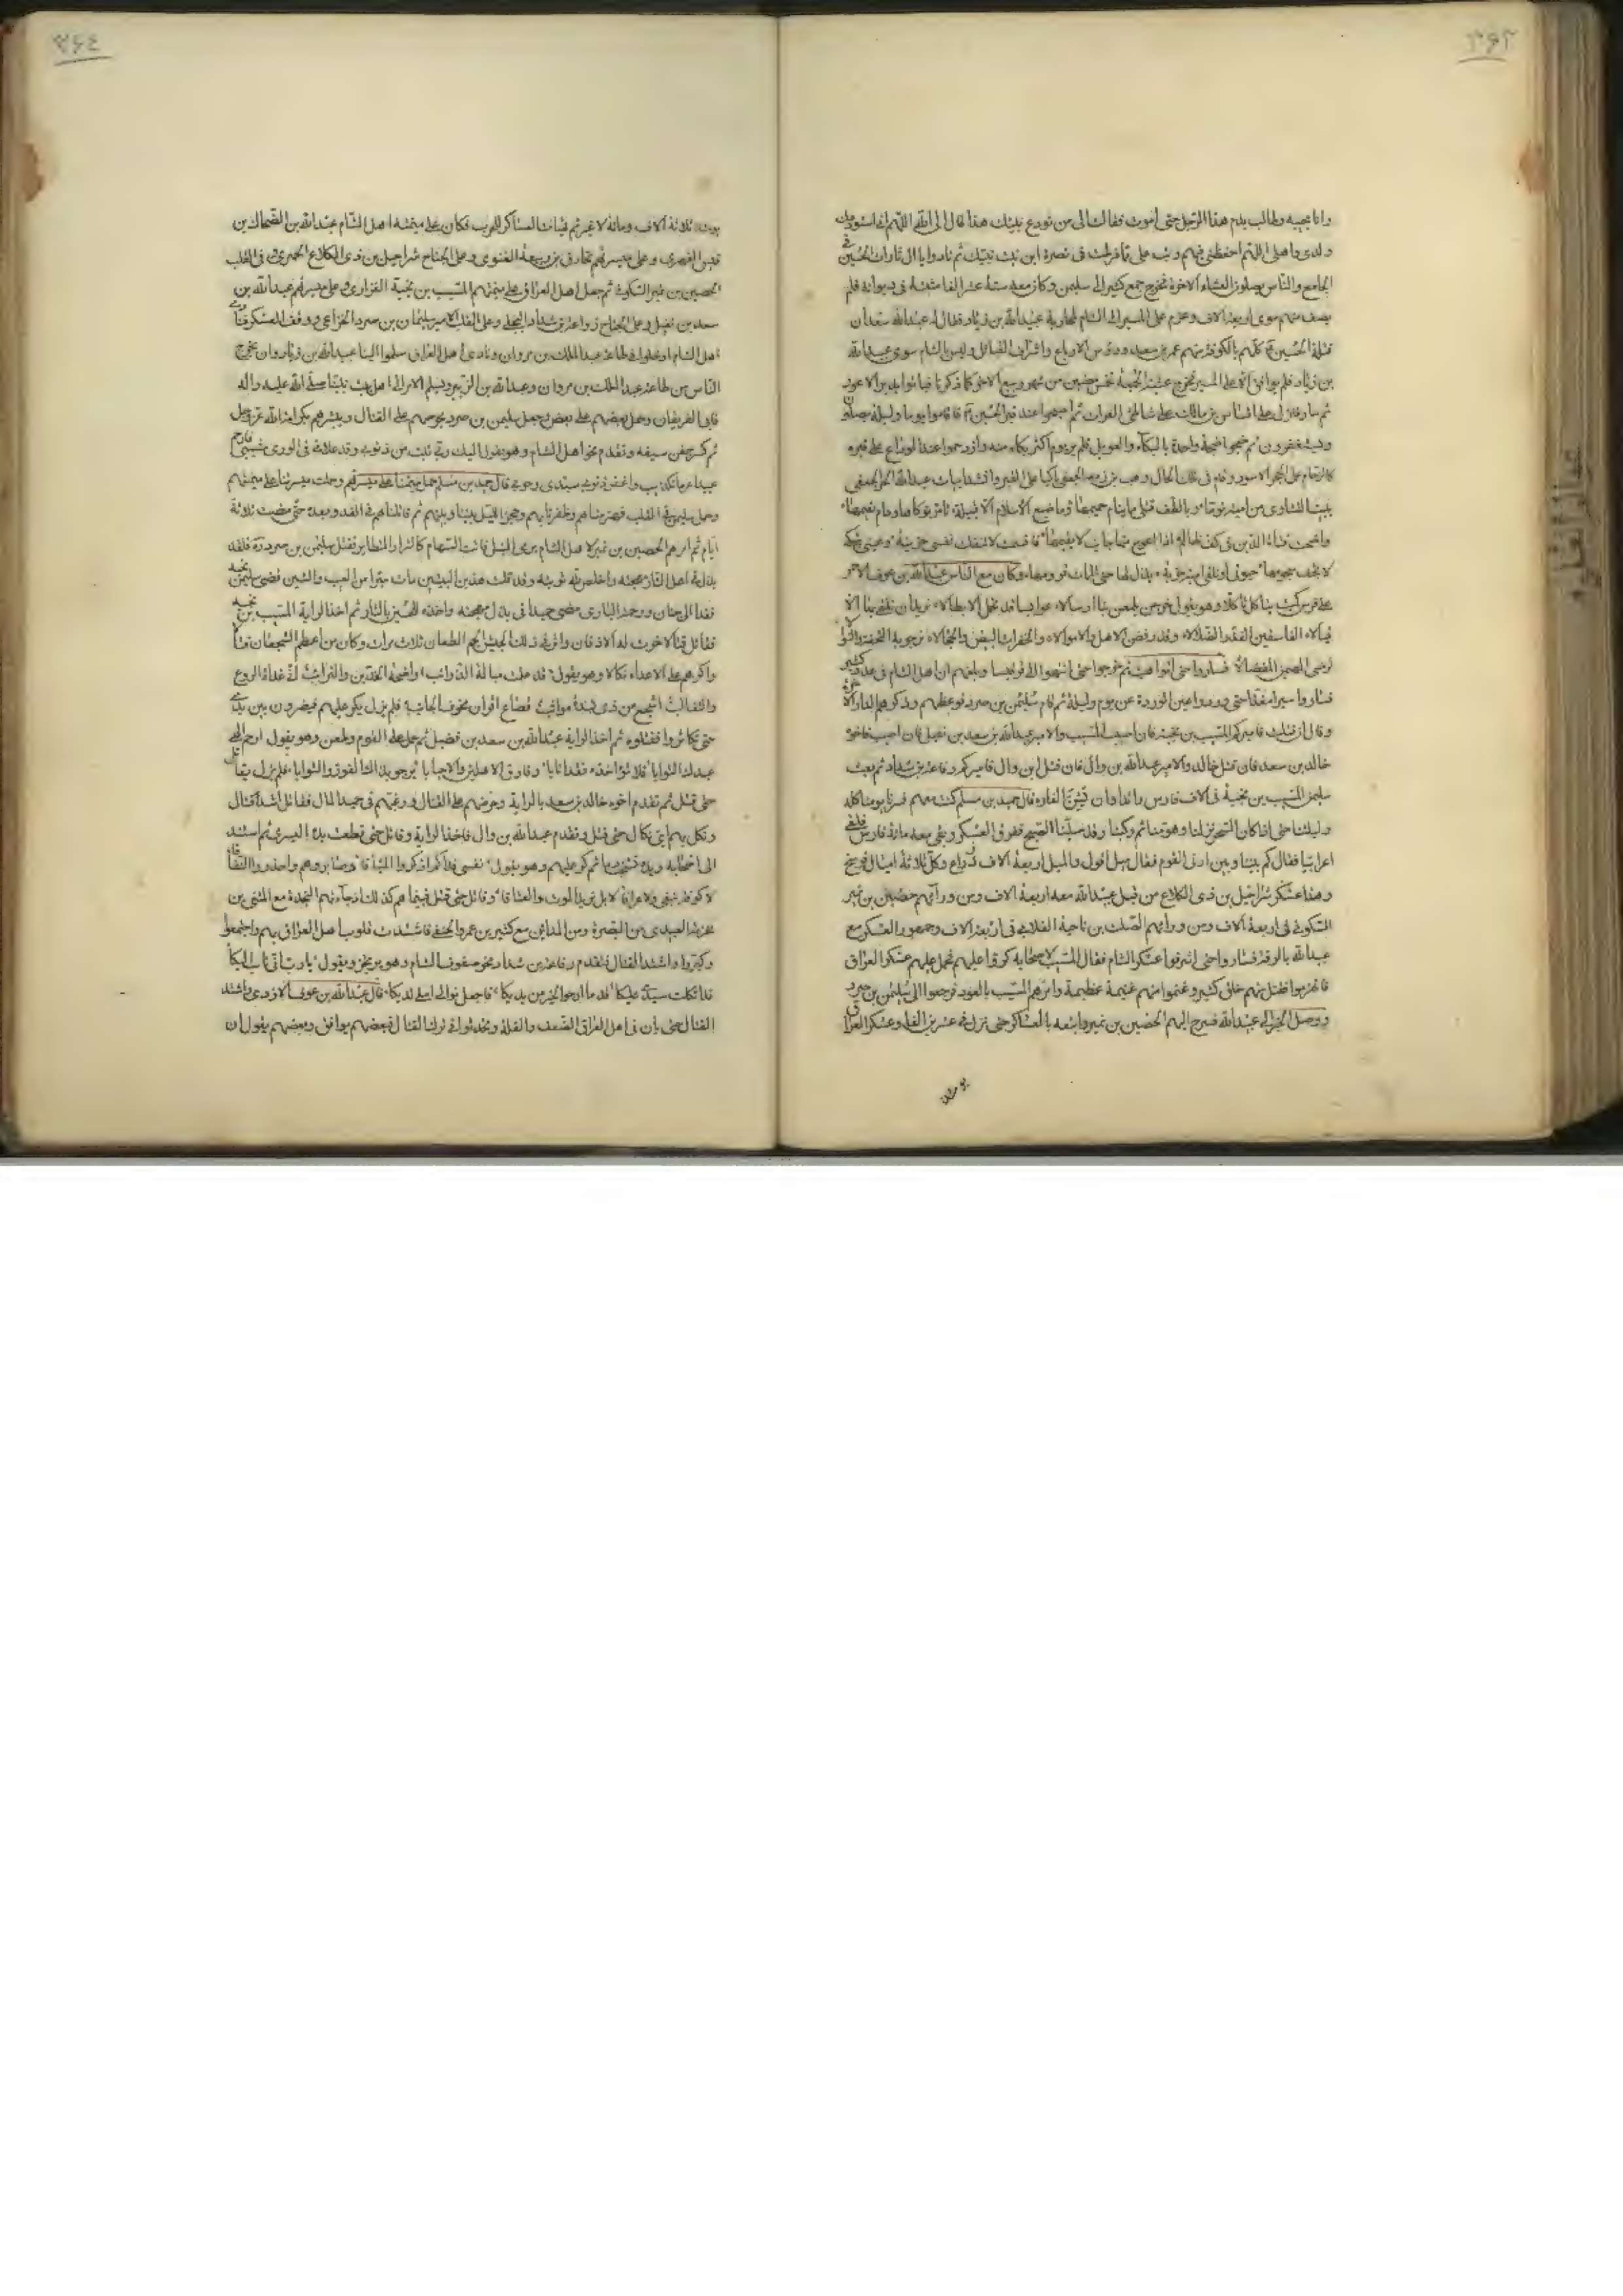 ۳۶۳
وانا مجيبه وطالب بدم هذا الرجل حتى اموت فقالت الى من تودع بيتك هذا قال الى الله اللهم انى استودعك
ولدى واهلى اللهم احفظنى فيهم وتب على ما فرطت فى نصرة ابن بنت نبيك ثم نادوا يا ال ثارات الحسين فى
الجامع والناس يصلون العشاء الاخرة فخرج جمع كثير الى سليمن وكان معه ستة عشر الفا مثبتة فى ديوانه فلم
يصف منهم سوى اربعة الاف وعزم على المسير الى الشام لمحاربة عبيد الله بن زياد فقال له عبد الله بن سعد ان
قتلة الحسين ع كلهم بالكوفة منهم عمر بن سعد ورؤس الارباع واشراف القبائل وليس بالشام سوى عبيد الله
بن زياد فلم يوافق الا على المسير فخرج عشية الجمعة لخمس مضين من شهر ربيع الاخر كما ذكرنا
ثم سار فنزل على اقساس بن مالك على شاطئ الفرات ثم اصبحوا عند قبر الحسين ع فاقاموا يوما وليلة يصلون
ويستغفرون ثم ضجوا ضجة واحدة بالبكاء والعويل فلم ير يوم اكثر بكاء منه وازدحموا عند الوداع على قبره
كالزحام على الحجر الاسود وقام فى تلك الحال وهب بن زمعة الجعفى باكيا على القبر وانشد ابيات عبيد الله بن الحر الجعفى
تبيت النشاوى من امية نوما وبالطف قتلى ما ينام حميمها وما ضيع الاسلام الا قبيلة تامر نوكاها ودام نعيمها
واضحت قناة الدين فى كف ظالم اذا اعوج منها جانب لا يقيمها فاقسمت لا تنفك نفسى حزينة وعينى تبكى
لا يجف سجومها حيوتى او تلقى امية خزية يذل لها حتى الممات قرومها وكان مع الناس عبد الله بن عوف الاحمر
على فرس كميت يتاكل تاكلا وهو يقول خرجن يلمعن بنا ارسالا عوابسا قد تحمل الابطالا نريد ان نلقى بها الا
قيالا الفاسقين الغدر الضلالا وقد رفضنا الاهل والاموالا والخفرات البيض والحجالا نرجو به التحفة والنوالا
لنرضى المهيمن المفضالا فساروا حتى اتوا هيت ثم خرجوا حتى انتهوا الى قرقيسا وبلغهم ان اهل الشام فى عدد كثير
فساروا سيرا مغذا حتى وردوا عين الوردة عن يوم وليلة ثم قام سليمن بن صرد فوعظهم وذكرهم الدار الاخرة
وقال ان قتلت فاميركم المسيب بن نجبة فان اصيب المسيب فالامير عبد الله بن سعد بن نفيل فان اصيب فاخوه
خالد بن سعد فان قتل خالد فالامير عبد الله بن وال فان قتل ابن وال فاميركم رفاعة بن شداد ثم بعث
سليمن المسيب بن نجبة فى الاف فارس رائدا وان يشن الغارة قال حميد بن مسلم كنت معهم فسرنا يومنا كله
وليلتنا حتى اذا كان السحر نزلنا وهومنا ثم ركبنا وقد صلينا الصبح ففرق العسكر وبقى معه مائة فارس فلقى
اعرابيا فقال كم بيننا وبين ادنى القوم فقال ميل اقول والميل اربعة الاف ذراع وكل ثلاثة اميال فرسخ
وهذا عسكر شراحيل بن ذى الكلاع من قبل عبيد الله معه اربعة الاف ومن ورائهم حصين بن نمير
السكونى فى اربعة الاف ومن ورائهم الصلت بن ناجية الغلابى فى اربعة الاف وجمهور العسكر مع
عبيد الله بالرقة فساروا حتى اشرفوا على عسكر الشام فقال المسيب لاصحابه كروا عليهم فحمل عليهم عسكر العراق
فانهزموا فقتل منهم خلق كثير وغنموا منهم غنيمة عظيمة وامرهم المسيب بالعود فرجعوا الى سليمن بن صرد
ووصل الخبر الى عبيد الله فسرح اليهم الحصين بن نمير واتبعه بالعساكر حتى نزل فى عشرين الفا وعسكر العراق
يومئذ
۳۶٤
يومئذ ثلاثة الاف ومائة لا غير ثم تهيات العساكر للحرب فكان على ميمنة اهل الشام عبد الله بن الضحاك بن
قيس الفهرى وعلى ميسرتهم مخارق بن ربيعة الغنوى وعلى الجناح شراحيل بن ذى الكلاع الحميرى وفى القلب
الحصين بن نمير السكونى ثم جعل اهل العراق على ميمنتهم المسيب بن نجبة الفزارى وعلى ميسرتهم عبد الله بن
سعد بن نفيل وعلى الجناح رفاعة بن شداد البجلى وعلى القلب الامير سليمان بن صرد الخزاعى ووقف العسكر فنادى
اهل الشام ادخلوا فى طاعة عبد الملك بن مروان ونادى اهل العراق سلموا الينا عبيد الله بن زياد وان يخرج
الناس من طاعة عبد الملك بن مروان وعبد الله بن الزبير ويسلم الامر الى اهل بيت نبينا صلى الله عليه واله
فابى الفريقان وحمل بعضهم على بعض وجعل سليمن بن صرد يحرضهم على القتال ويبشرهم بكرامة الله عز وجل
ثم كسر جفن سيفه وتقدم نحو اهل الشام وهو يقول اليك ربى تبت من ذنوبى وقد علانى فى الورى مشيبى فارحم
عبيدا غير ما تكذيب واغفر ذنوبى سيدى وحوبى قال حميد بن مسلم حملت ميمنتنا على ميسرتهم وحملت ميسرتنا على ميمنتهم
وحمل سليمن فى القلب فهزمناهم وظفرنا بهم وحجز الليل بيننا وبينهم ثم قاتلناهم فى الغد وبعده حتى مضت ثلاثة
ايام ثم امرهم الحصين بن نمير لاهل الشام برمى النبل فاتت السهام كالشرار المتطاير فقتل سليمن بن صرد ره فلقد
بذل فى اهل الثار مهجته واخلص لله توبته وقد قلت هذين البيتين مات مبرا من العيب والشين قضى سليمن نحبه
فغدا الى جنان ورحمة البارى مضى حميدا فى بذل مهجته واخذه للحسين بالثار ثم اخذ الراية المسيب بن نجبة
فقاتل قتالا خرت له الاذقان واثر فى ذلك الجيش الجم الطعان ثلاث مرات وكان من اعظم الشجعان قتالا
واكرهم على الاعداء نكالا وهو يقول قد علمت ميالة الذوائب واضحة الخدين والترائب انى غداة الروع
والتغالب اشجع من ذى لبدة مواثب قصاع اقران مخوف الجانب فلم يزل يكر عليهم فيفرون بين يديه
حتى تكاثروا فقتلوه ثم اخذ الراية عبد الله بن سعد بن نفيل ثم حمل على القوم وطعن وهو يقول ارحم الهى
عبدك التوابا فلا تؤاخذه فقد انابا وفارق الاهلين والاحبابا يرجو بذاك الفوز والثوابا فلم يزل يقاتل
حتى قتل ثم تقدم اخوه خالد بن سعيد بالراية وحرضهم على القتال ورغبهم فى حميد المال فقاتل اشد قتال
ونكل بهم اى نكال حتى قتل وتقدم عبد الله بن وال فاخذ الراية وقاتل حتى قطعت يده اليسرى ثم استند
الى اصحابه ويده تشخب دما ثم كر عليهم وهو يقول نفسى فداكم اذكروا الميثاقا وصابروهم واحذروا النفاقا
لا كوفة نبغى ولا عراقا لا بل نريد الموت والعتاقا وقاتل حتى قتل فبينما هم كذلك اذ جاءتهم النجدة مع المثنى بن
مخرمة العبدى من البصرة ومن المدائن مع كثير بن عمرو الحنفى فاشتدت قلوب اهل العراق بهم واجتمعوا
وكبروا واشتد القتال فتقدم رفاعة بن شداد نحو صفوف الشام وهو يرتجز ويقول يا رب انى تائب اليكا
قد اتكلت سيدى عليكا قدما ارجو الخير من يديكا فاجعل ثوابى املى لديكا قال عبد الله بن عوف الازدى واشتد
القتال حتى بان فى اهل العراق الضعف والقلة وتحدثوا فى ترك القتال فبعضهم يوافق وبعضهم يقول ان